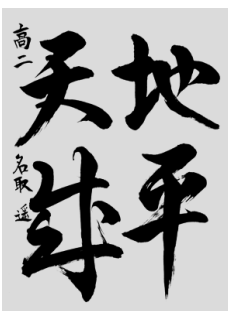 地平
天成
高二 名取 遥